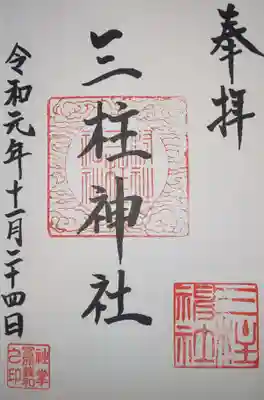 奉拝
三柱神社
令和元年十一月二十四日
三柱神社